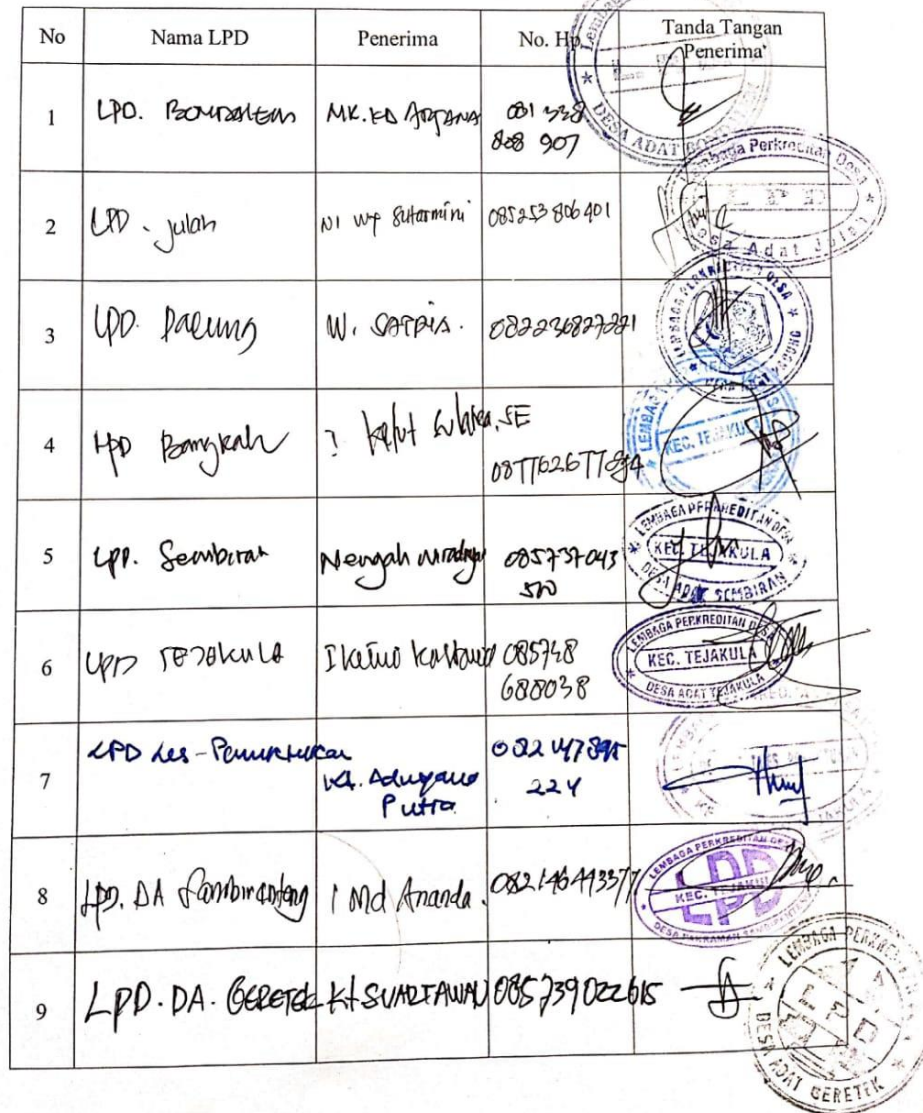 No Nama LPD Penerima No. Hp Tanda Tangan
Penerima
1 LPD. BONDALEM MK. KD ARTANA 081 338
808 907
DESA ADAT
2 LPD. Julah NI Wy Sutarmini 085253806401
Lembaga Perkreditan Desa
Desa Adat Julah
3 LPD. Pacung W. SATRIA. 082236827221
LEMBAGA PERKREDITAN DESA
4 LPD Bangkah I Ketut SE
087762677894
KEC. TEJAKULA
5 LPD. Sembiran Nengah 085737043
LEMBAGA PERKREDITAN DESA
KEC. TEJAKULA
DESA ADAT SEMBIRAN
6 LPD TEJAKULA I Ketut 085748
688038
LEMBAGA PERKREDITAN DESA
KEC. TEJAKULA
DESA ADAT TEJAKULA
7 LPD Les-Penuktukan
Kt. Adnyana
Putra 224
8 LPD. DA Sambirenteng I Md Ananda. 082146443377
LEMBAGA PERKREDITAN DESA
KEC. TEJAKULA
LPD
DESA PAKRAMAN SAMBIRENTENG
9 LPD. DA. GERETEK Kt SUARTAWAN 085739022615
LEMBAGA PERKREDITAN
LPD
DESA ADAT GERETEK